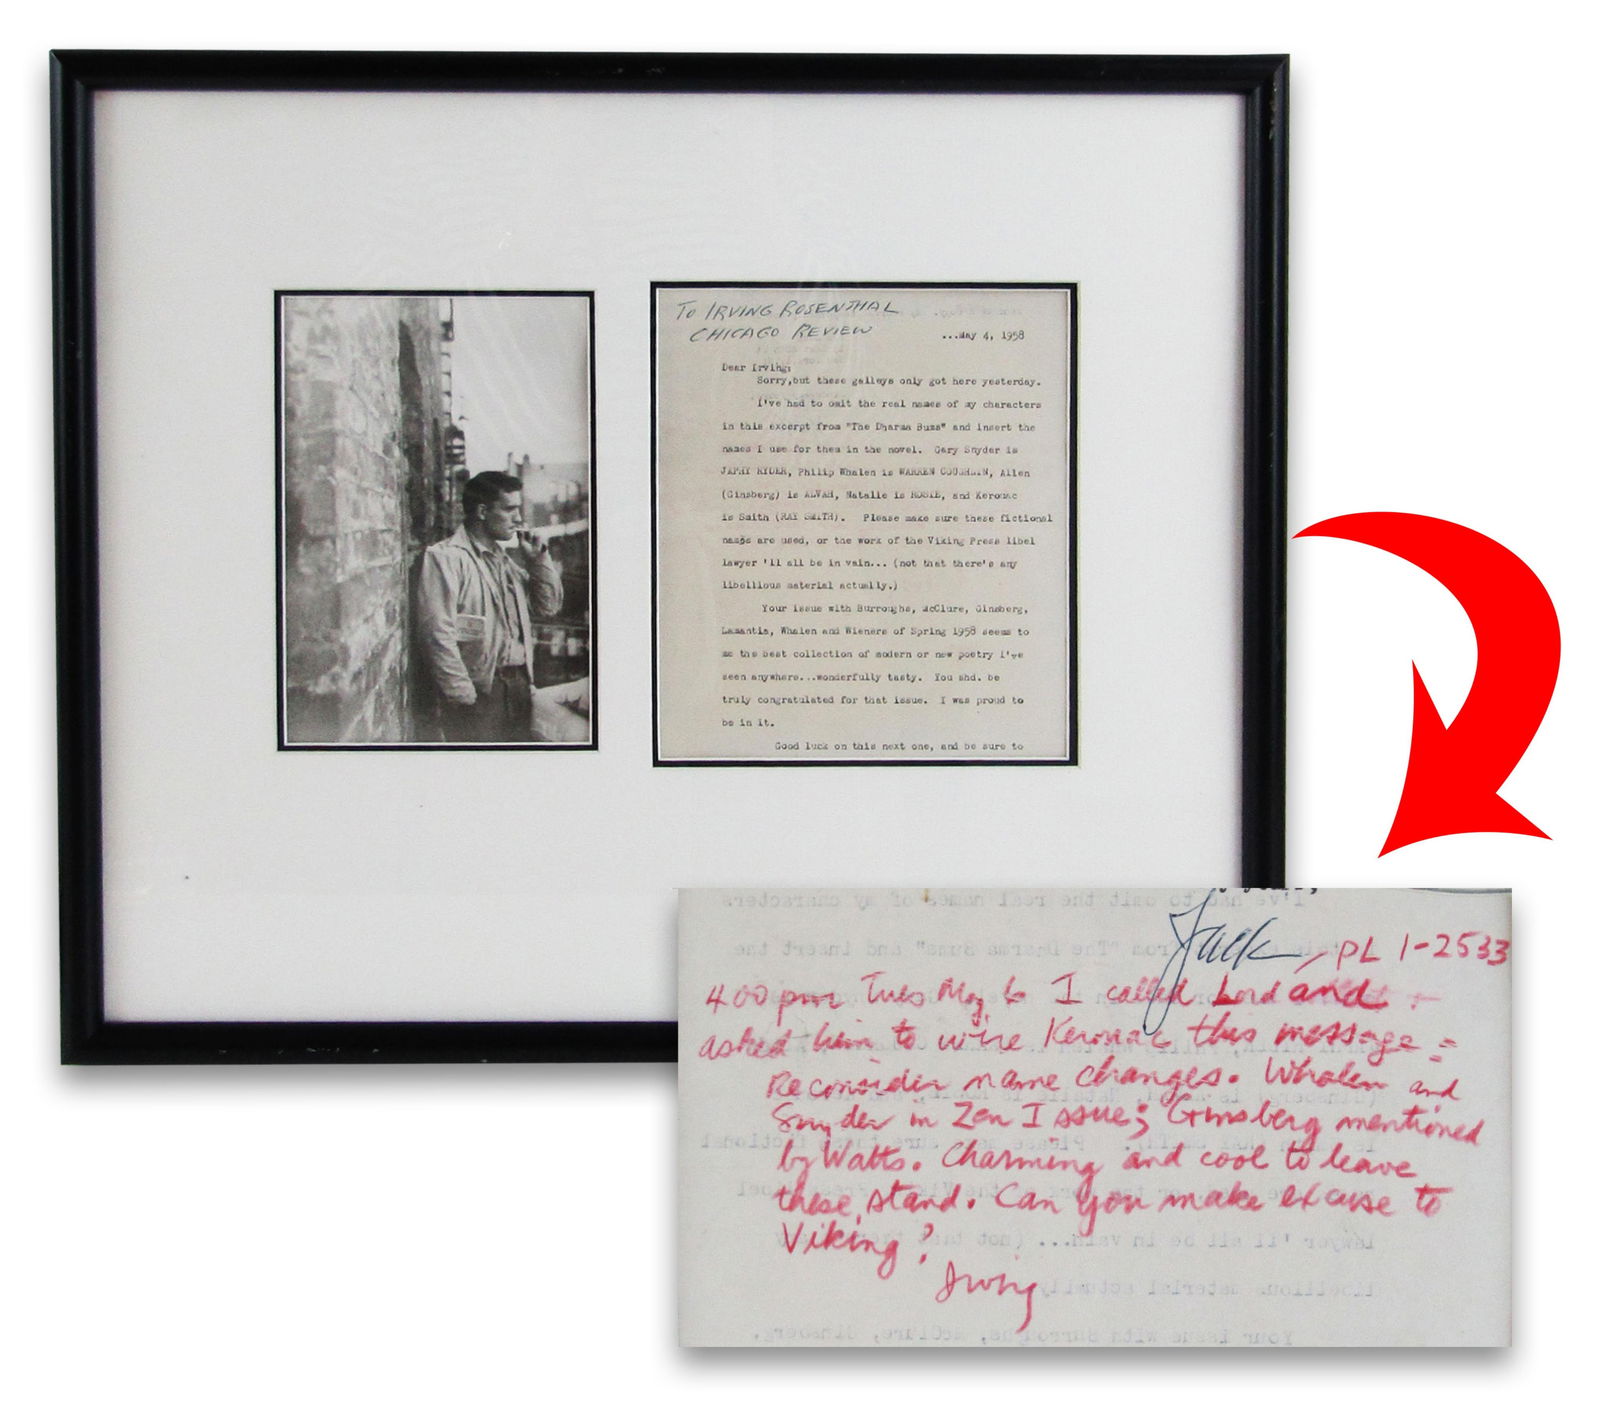 TO IRVING ROSENTHAL
CHICAGO REVIEW
...May 4, 1958
Dear Irving:
Sorry,but these galleys only got here yesterday.
I've had to omit the real names of my characters
in this excerpt from "The Dharma Bums" and insert the
names I use for them in the novel. Gary Snyder is
JAPHY RYDER, Philip Whalen is WARREN COUGHLIN, Allen
(Ginsberg) is ALVAH, Natalie is ROSIE, and Kerouac
is Smith (RAY SMITH). Please make sure these fictional
names are used, or the work of the Viking Press libel
lawyer 'll all be in vain... (not that there's any
libellious material actually.)
Your issue with Burroughs, McClure, Ginsberg,
Lamantia, Whalen and Wieners of Spring 1958 seems to
me the best collection of modern or new poetry I've
seen anywhere...wonderfully tasty. You shd. be
truly congratulated for that issue. I was proud to
be in it.
Good luck on this next one, and be sure to
Jack, PL 1-2533
4.00 pm Tues May 6 I called Lord and
asked him to wire Kerouac this message =
Reconsider name changes. Whalen and
Snyder in Zen Issue; Ginsberg mentioned
by Watts. Charming and cool to leave
these stand. Can you make excuse to
Viking?
Irving